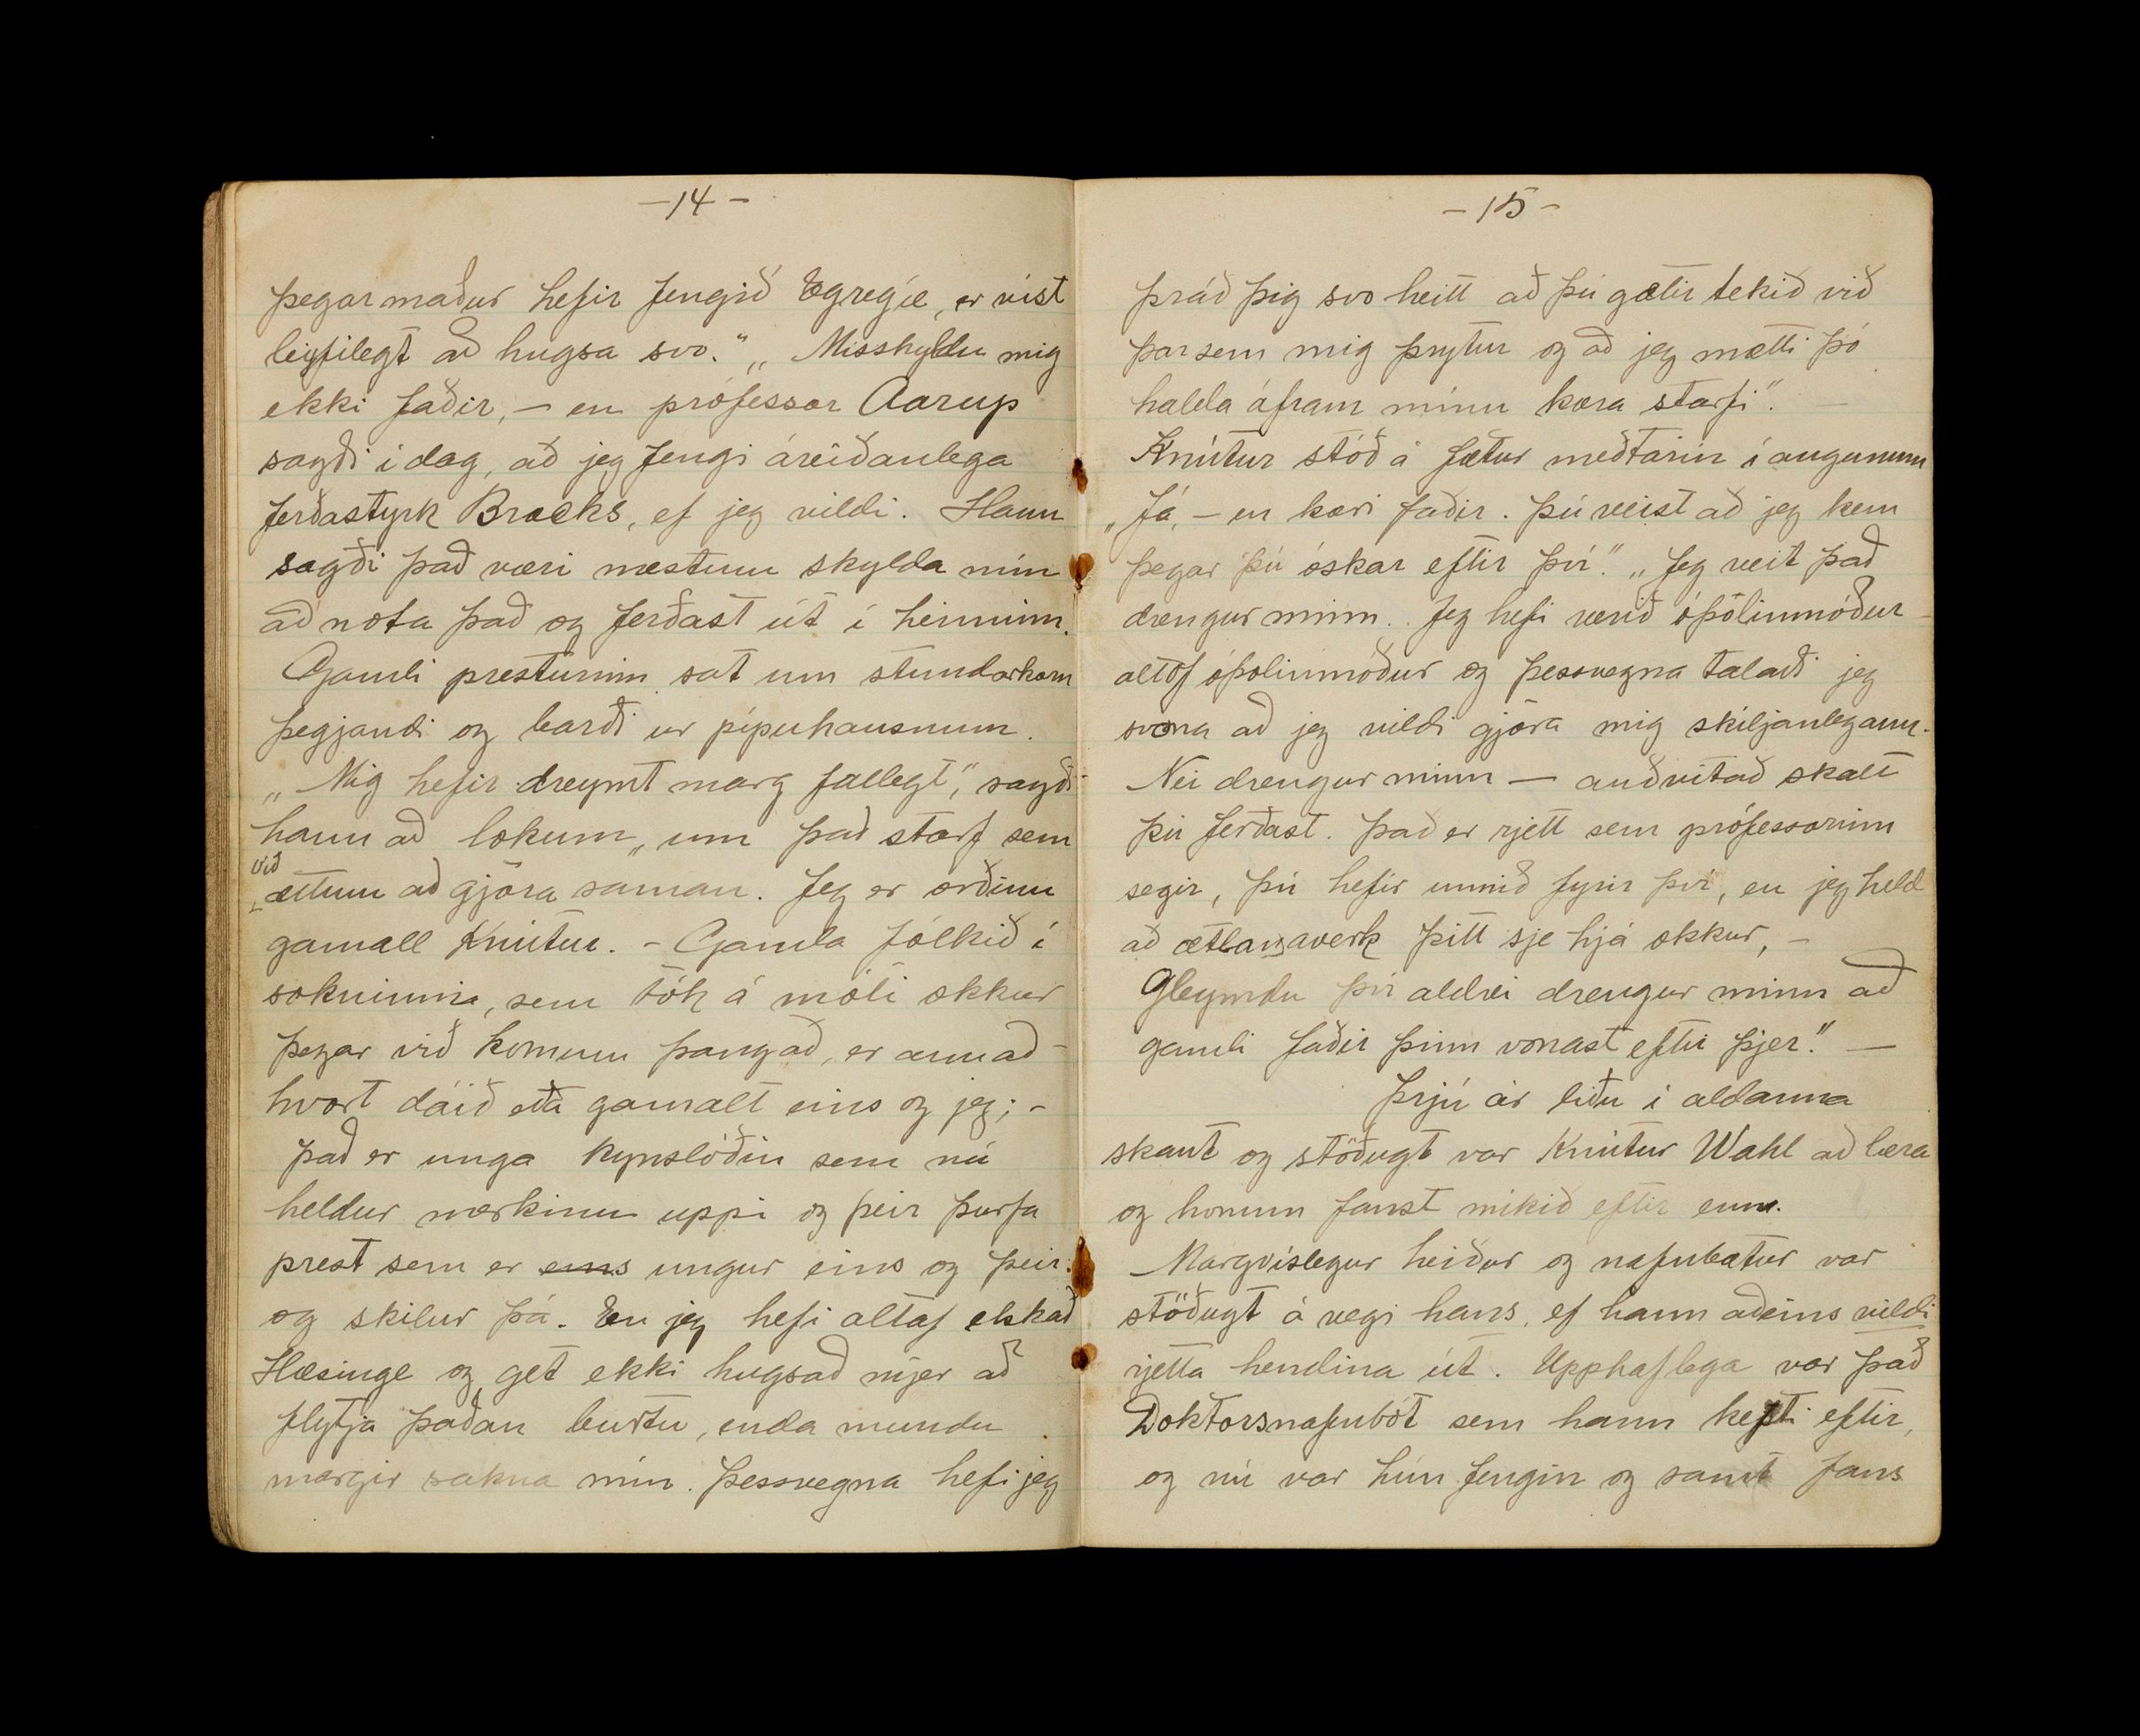 -14-
þegar maður hefir fengið Egregie, er víst
leyfilegt að hugsa svo." „Misskyldu mig
ekki faðir, - en prófessor Aarup
sagði í dag, að jeg fengi áreiðanlega
ferðastyrk Brocks, ef jeg vildi. Hann
sagði það væri næstum skylda mín
að nota það og ferðast út í heiminn.
Gamli presturinn sat um stundarkorn
þegjandi og barði ur pípuhausnum.
„Mig hefir dreymt marg fallegt," sagði
hann að lokum „um það starf sem
við
ættum að gjöra saman. Jeg er orðinn
gamall Knútur. - Gamla fólkið í
sokninni, sem tók á móti okkur
þegar við komum þangað, er annað-
hvort dáið eða gamalt eins og jeg; -
það er unga kynslóðin sem nú
heldur merkinu uppi og þeir þurfa
prest sem er eins ungur eins og þeir.
og skilur þá. En jeg hefi altaf elskað
Hæsinge og get ekki hugsað mjer að
flytja þaðan burtu, enda mundu
margir sakna mín. Þessvegna hefi jeg
-15-
þráð þig svo heitt að þú gætir tekið við
þar sem mig þrytur og að jeg mætti þó
halda áfram mínu kæra starfi". -
Knútur stóð á fætur með tárin í augunum
„Já, - en kæri faðir. Þú veist að jeg kem
þegar þú óskar eftir því." „Jeg veit það
drengur minn. Jeg hefi verið óþólinmóður -
altof óþolinmóður og þessvegna talaði jeg
svona að jeg vildi gjöra mig skiljanlegann.
Nei drengur minn - auðvitað skalt
þú ferðast. Það er rjett sem prófessorinn
segir, þú hefir unnið fyrir því, en jeg held
að ætlanaverk þitt sje hjá okkur, -
Gleymdu því aldrei drengur minn að
gamli faðir þinn vonast eftir þjer." -
Þrjú ár liðu í aldanna
skaut og stöðugt var Knútur Wahl að læra
og honum fanst mikið eftir enn.
Margvíslegur heiður og nafnbætur var
stöðugt á vegi hans, ef hann aðeins vildi
rjetta hendina út. Upphaflega var það
Doktorsnafnbót sem hann kepti eftir,
og nú var hún fengin og samt fans